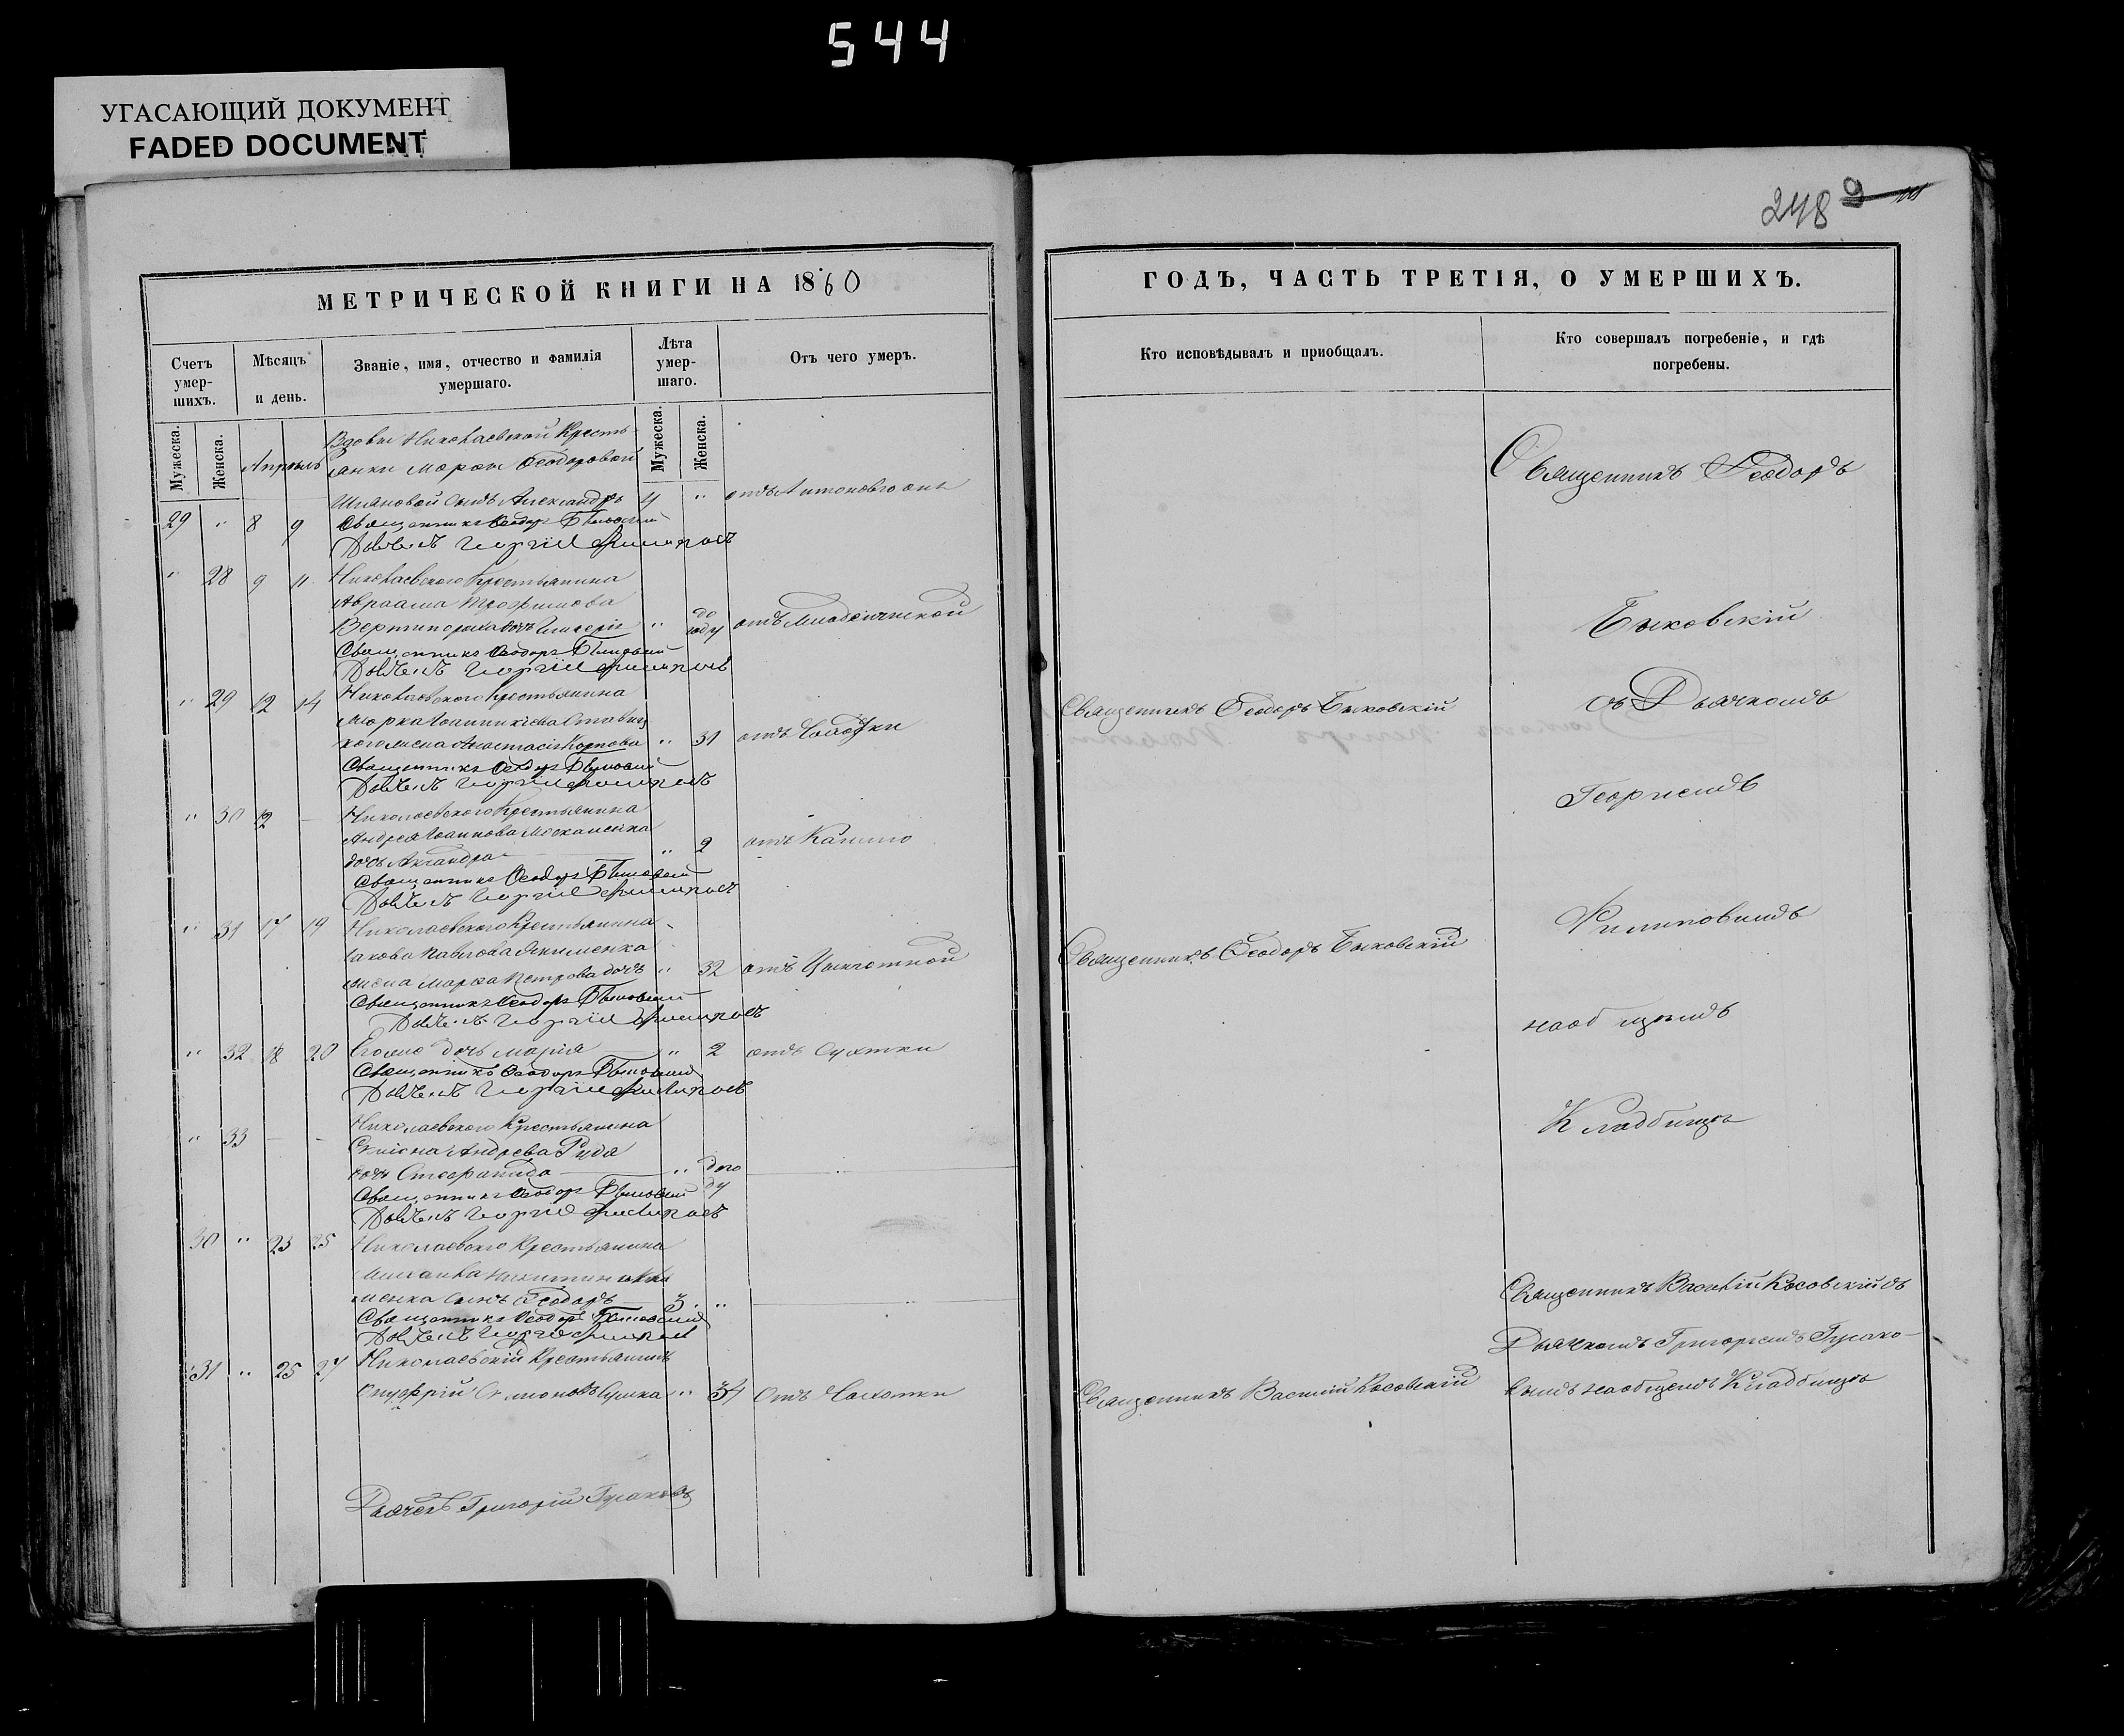 544
УГАСАЮЩИЙ ДОКУМЕНТ
FADED DOCUMENT
МЕТРИЧЕСКОЙ КНИГИ НА 1860
Счетъ умер-шихъ.
Мѣсяцъ и день.
Званіе, имя, отчество и фамилія умершаго.
Лѣта умер-шаго.
Отъ чего умеръ.
Мужеска.
Женска.
Апрѣль
Мужеска.
Женска.
Вдовы Николаевской Кресть-
янки Марфы Ѳеодоровой
сынъ Александръ 4 " отъ Антоновго огня
29 " 8 9 Священникъ Ѳеодоръ Быковскій
Дьячекъ Георгій Филиповъ
" 28 9 11 Николаевского Крестьянина
Авраама Трофимова
дочь Гликерія " до году отъ Младенческой
Священникъ Ѳеодоръ Быковскій
Дьячекъ Георгій Филиповъ
" 29 12 14 Николаевского Крестьянина
Марка
жена Анастасія Карпова " 31 отъ Чахотки
Священникъ Ѳеодоръ Быковскій
Дьячекъ Георгій Филиповъ
" 30 12 — Николаевского Крестьянина
Андрея Іоаннова
дочь " 2 отъ Кашлю
Священникъ Ѳеодоръ Быковскій
Дьячекъ Георгій Филиповъ
" 31 17 19 Николаевского Крестьянина
Іакова Павлова Якименка
жена Марфа Петрова дочь " 32 отъ
Священникъ Ѳеодоръ Быковскій
Дьячекъ Георгій Филиповъ
" 32 18 20 Егоже дочь Марія " 2 отъ Сухотки
Священникъ Ѳеодоръ Быковскій
Дьячекъ Георгій Филиповъ
" 33 — — Николаевского Крестьянина
Андреева
дочь " до году "
Священникъ Ѳеодоръ Быковскій
Дьячекъ Георгій Филиповъ
30 " 23 25 Николаевского Крестьянина
Михаила
сынъ Ѳеодоръ 3 " "
Священникъ Ѳеодоръ Быковскій
Дьячекъ Георгій Филиповъ
31 " 25 27 Николаевскій Крестьянинъ
Онуфрій " 34 Отъ Чахотки
Дьячекъ Григорій Гусаковъ
248 9
ГОДЪ, ЧАСТЬ ТРЕТІЯ, О УМЕРШИХЪ.
Кто исповѣдывалъ и приобщалъ.
Кто совершалъ погребеніе, и гдѣ погребены.
Священникъ Ѳеодоръ
Быковскій
Священникъ Ѳеодоръ Быковскій
съ Дьячкомъ
Георгіемъ
Филиповымъ
Священникъ Ѳеодоръ Быковскій
наобщемъ
Кладбищѣ
Священникъ Василій Косовскій съ
Дьячкомъ Григоріемъ Гусако-
Священникъ Василій Косовскій
вымъ наобщемъ Кладбищѣ